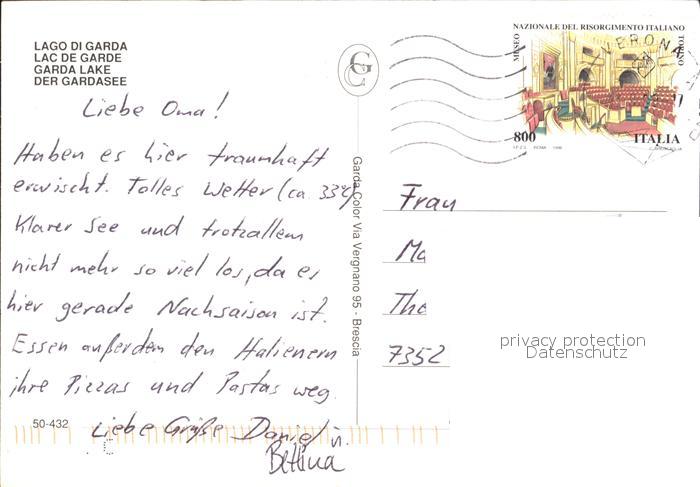 LAGO DI GARDA
LAC DE GARDE
GARDA LAKE
DER GARDASEE
Liebe Oma!
Haben es hier traumhaft
erwischt. Tolles Wetter (ca. 33°C)
Klarer See und trotzallem
nicht mehr so viel los, da es
hier gerade Nachsaison ist.
Essen außerdem den Italienern
ihre Pizzas und Pastas weg.
Liebe Grüße Daniel u.
Bettina
50-432
Garda Color Via Vergnano 95 - Brescia
MUSEO NAZIONALE DEL RISORGIMENTO ITALIANO TORINO
800 ITALIA
I.P.Z.S. ROMA
VERONA
Frau
Ma
Tho
7352
privacy protection
Datenschutz